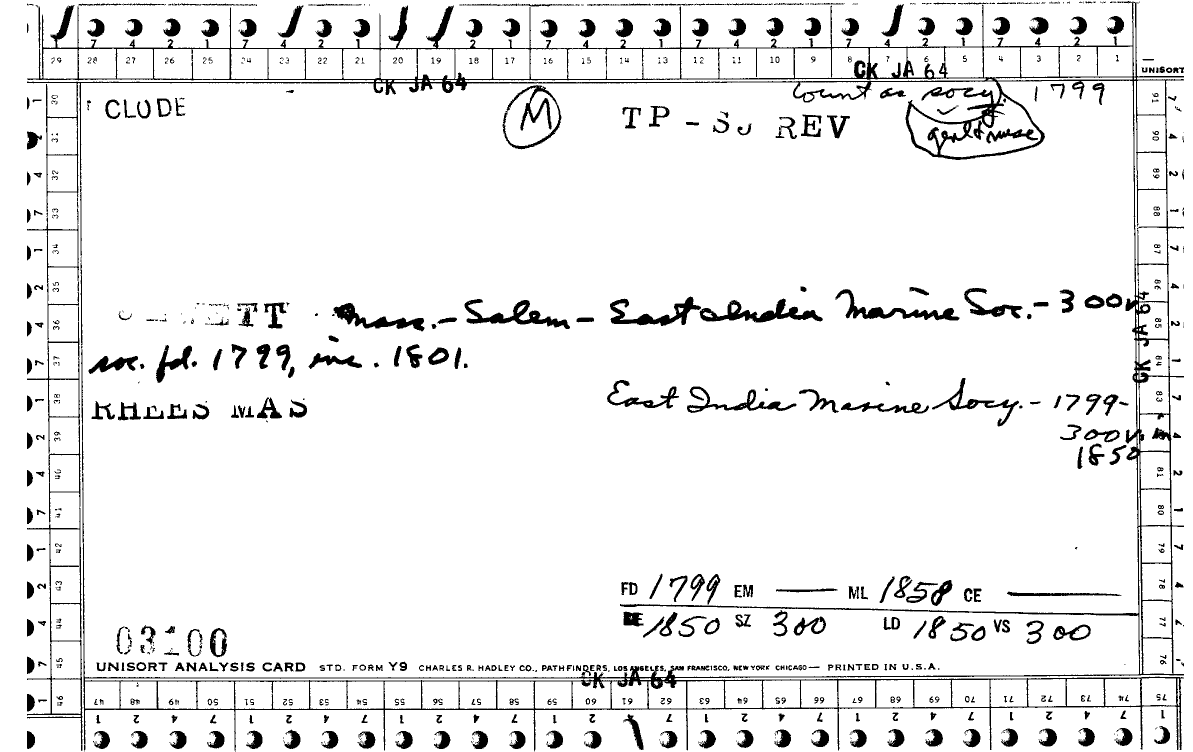 7 4 2 1 7 4 2 1 7 4 2 1 7 4 2 1 7 4 2 1 7 4 2 1 7 4 2 1
29 28 27 26 25 24 23 22 21 20 19 18 17 16 15 14 13 12 11 10 9 8 7 6 5 4 3 2 1
UNISORT
CK JA 64
CK JA 64
CLUDE
M
TP - SJ REV
Count as socy. 1799
genl + merc
JEWETT Mass. - Salem - East India Marine Soc. - 300v.
soc. fd. 1799, inc. 1801.
CK JA 64
RHEES MAS
East India Marine Socy. - 1799-
300v. in
1850
FD 1799 EM — ML 1858 CE —
RE 1850 SZ 300 LD 1850 VS 300
03100
UNISORT ANALYSIS CARD STD. FORM Y9 CHARLES R. HADLEY CO., PATHFINDERS, LOS ANGELES, SAN FRANCISCO, NEW YORK CHICAGO — PRINTED IN U.S.A.
CK JA 64
47 48 49 50 51 52 53 54 55 56 57 58 59 60 61 62 63 64 65 66 67 68 69 70 71 72 73 74 75
1 2 4 7 1 2 4 7 1 2 4 7 1 2 4 7 1 2 4 7 1 2 4 7 1 2 4 7 1